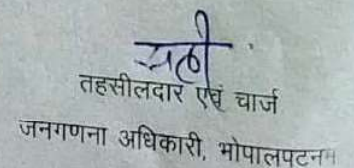 तहसीलदार एवं चार्ज
जनगणना अधिकारी, भोपालपटनम